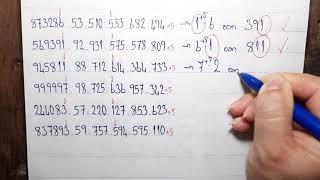 873286 53.510.533 682.494+5 → 1+5 6 con 391 ✓
569391 92.931 575.578.809+5 → 6+5 1 con 811 ✓
945811 88.712 614.364.733+5 → 7+5 2 con
999997 98.725 636 957.342+5
244083 57.220 127.853.623+5
837893 59.757 594 595.110+5